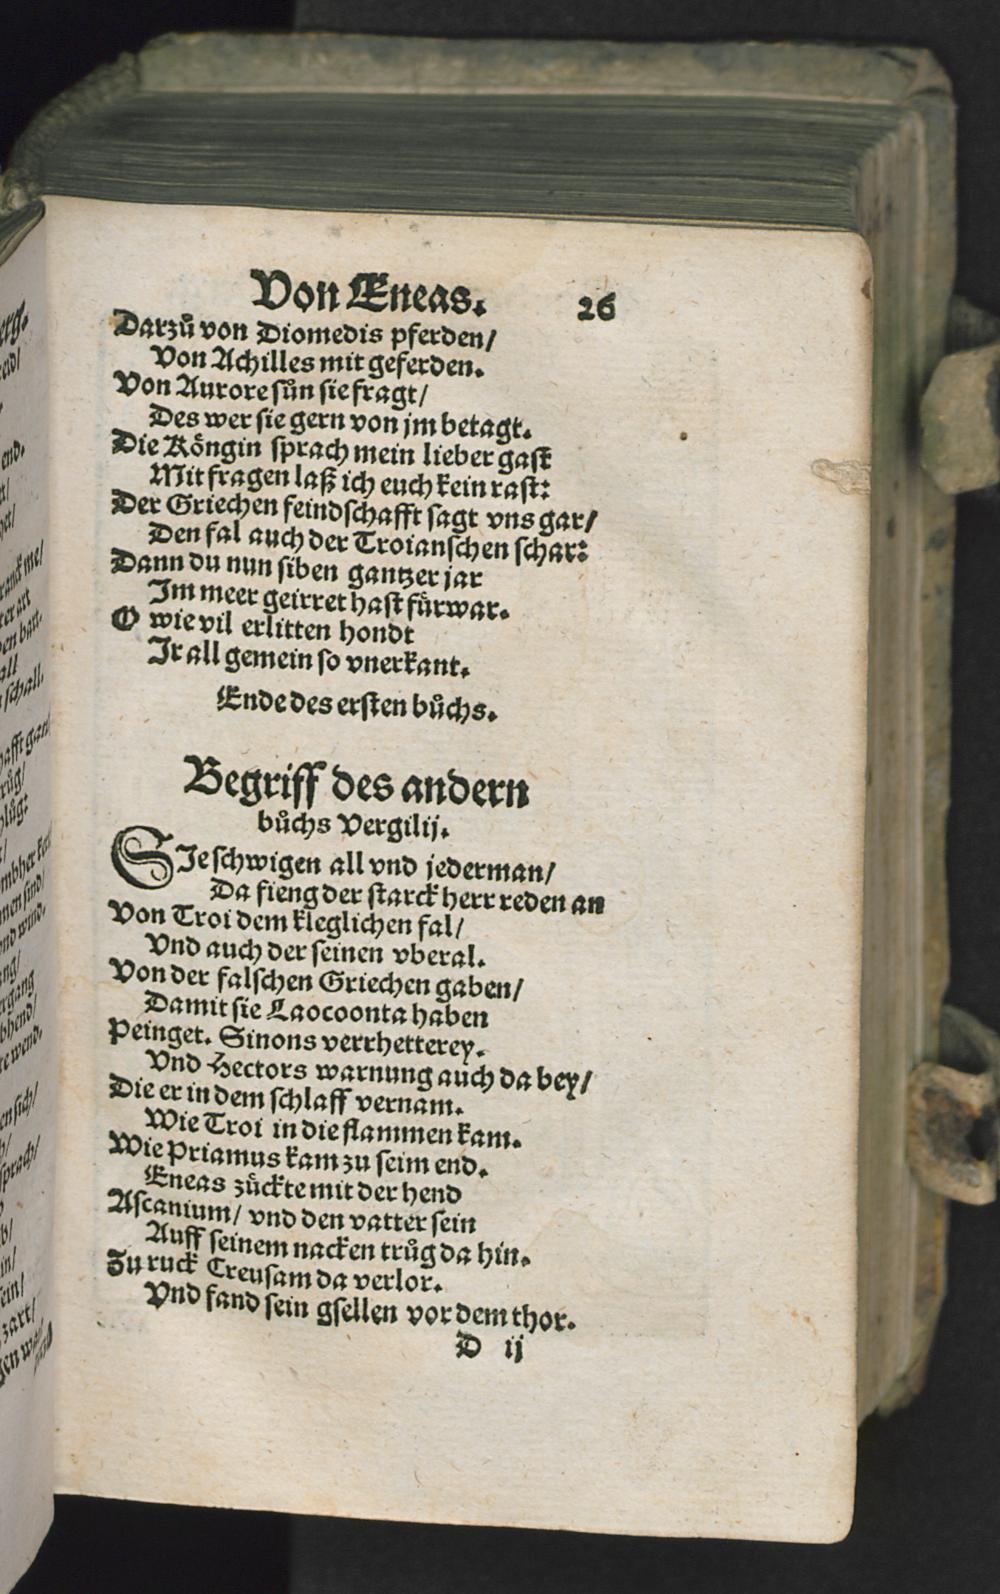 Von Æneas. 26
Darzů von Diomedis pferden/
Von Achilles mit geferden.
Von Aurore sůn sie fragt/
Des wer sie gern von jm betagt.
Die Köngin sprach mein lieber gast
Mit fragen laß ich euch kein rast:
Der Griechen feindschafft sagt vns gar/
Den fal auch der Troianschen schar:
Dann du nun siben gantzer jar
Im meer geirret hast fürwar.
O wie vil erlitten hondt
Ir all gemein so vnerkant.
Ende des ersten bůchs.
Begriff des andern
bůchs Vergilij.
SIe schwigen all vnd jederman/
Da fieng der starck herr reden an
Von Troi dem kleglichen fal/
Vnd auch der seinen vberal.
Von der falschen Griechen gaben/
Damit sie Laocoonta haben
Peinget. Sinons verrhetterey.
Vnd Hectors warnung auch da bey/
Die er in dem schlaff vernam.
Wie Troi in die flammen kam.
Wie Priamus kam zu seim end.
Eneas zückte mit der hend
Ascanium/ vnd den vatter sein
Auff seinem nacken trůg da hin.
Zu ruck Creusam da verlor.
Vnd fand sein gsellen vor dem thor.
D ij